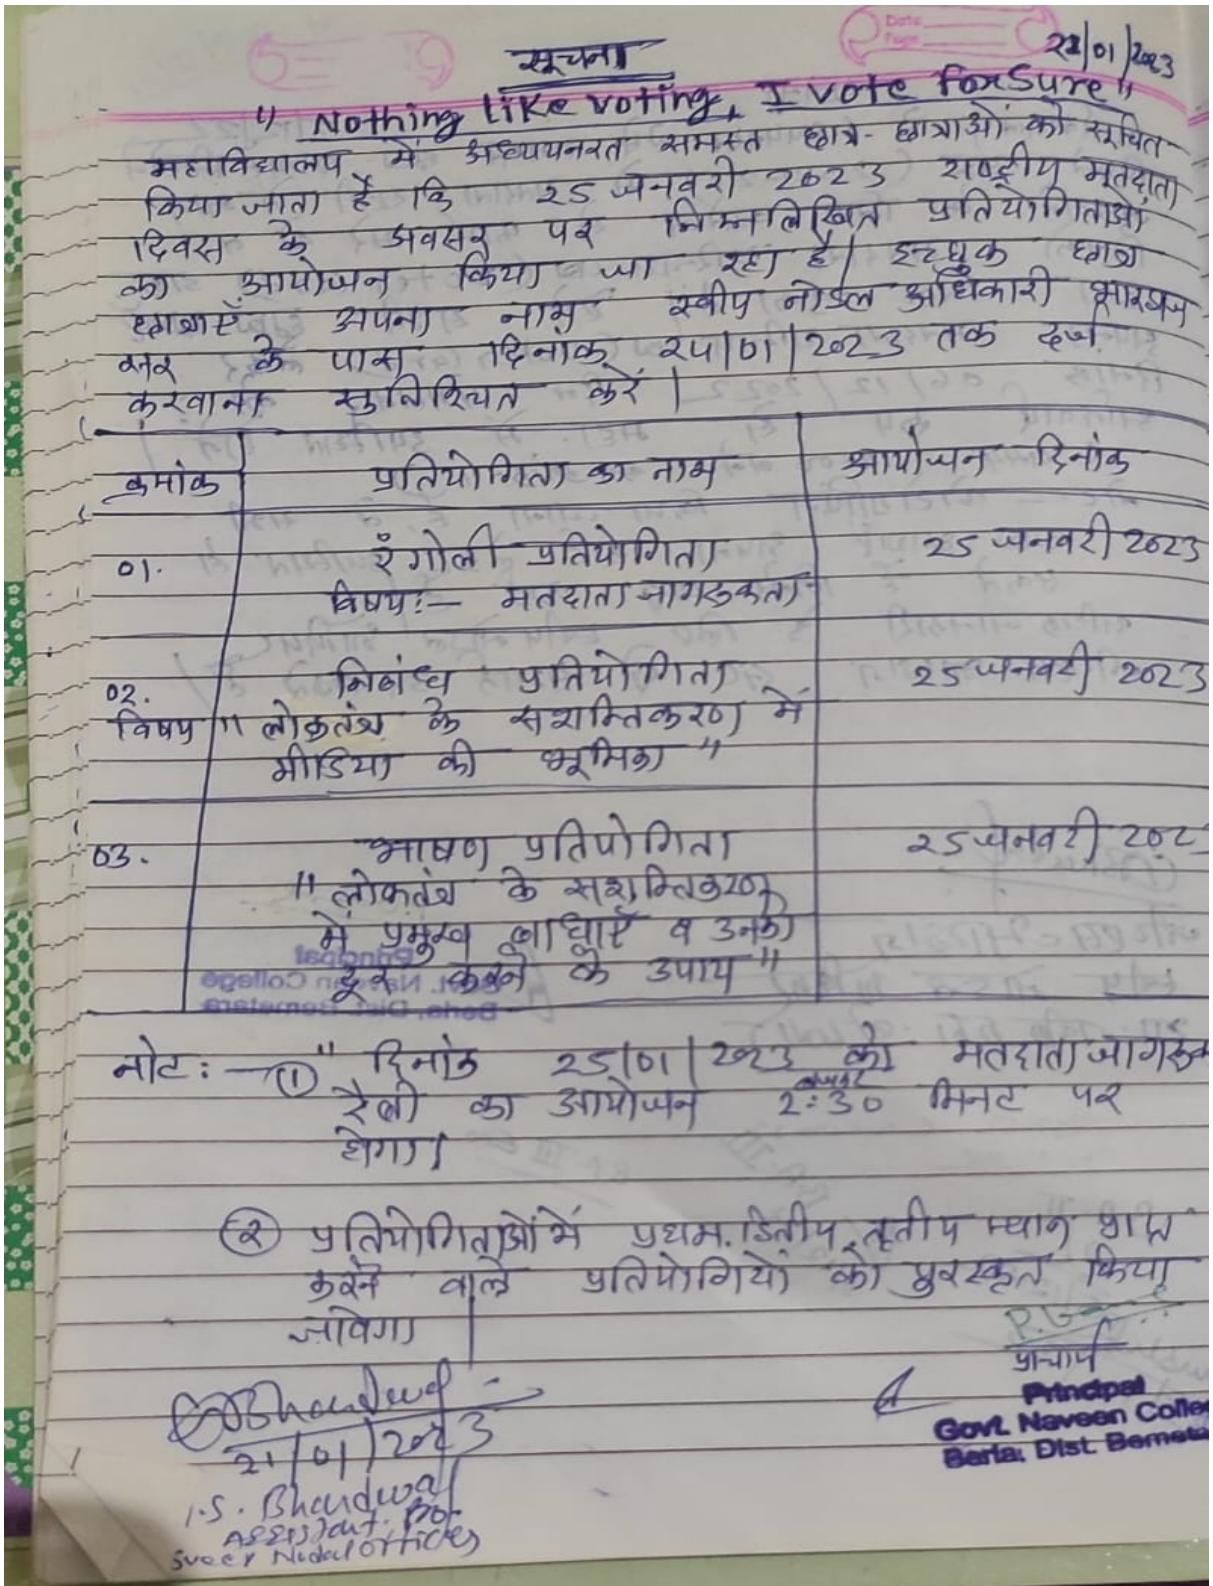 Date
Page
21/01/2023
सूचना
" Nothing like voting, I vote for Sure "
महाविद्यालय में अध्ययनरत समस्त छात्र-छात्राओं को सूचित
किया जाता है कि 25 जनवरी 2023 राष्ट्रीय मतदाता
दिवस के अवसर पर निम्नलिखित प्रतियोगिताओं
का आयोजन किया जा रहा है। इच्छुक छात्र
छात्राएँ अपना नाम स्वीप नोडल अधिकारी भारद्वाज
सर के पास दिनांक 24/01/2023 तक दर्ज
करवाना सुनिश्चित करें।
क्रमांक प्रतियोगिता का नाम आयोजन दिनांक
01. रंगोली प्रतियोगिता 25 जनवरी 2023
विषय :- मतदाता जागरूकता
02. निबंध प्रतियोगिता 25 जनवरी 2023
विषय " लोकतंत्र के सशक्तिकरण में
मीडिया की भूमिका "
03. भाषण प्रतियोगिता 25 जनवरी 202
" लोकतंत्र के सशक्तिकरण
में प्रमुख बाधाएँ व उनको
दूर करने के उपाय "
नोट :- ① " दिनांक 25/01/2023 को मतदाता जागरूक
रैली का आयोजन 2:30 मिनट पर
होगा।
② प्रतियोगिताओं में प्रथम, द्वितीय, तृतीय स्थान प्राप्त
करने वाले प्रतियोगियों को पुरस्कृत किया
जावेगा
प्राचार्य
Principal
Govt. Naveen Colle
Berla, Dist. Bemeta
21/01/2023
Assistant. Prof
Sveep Nodal officer